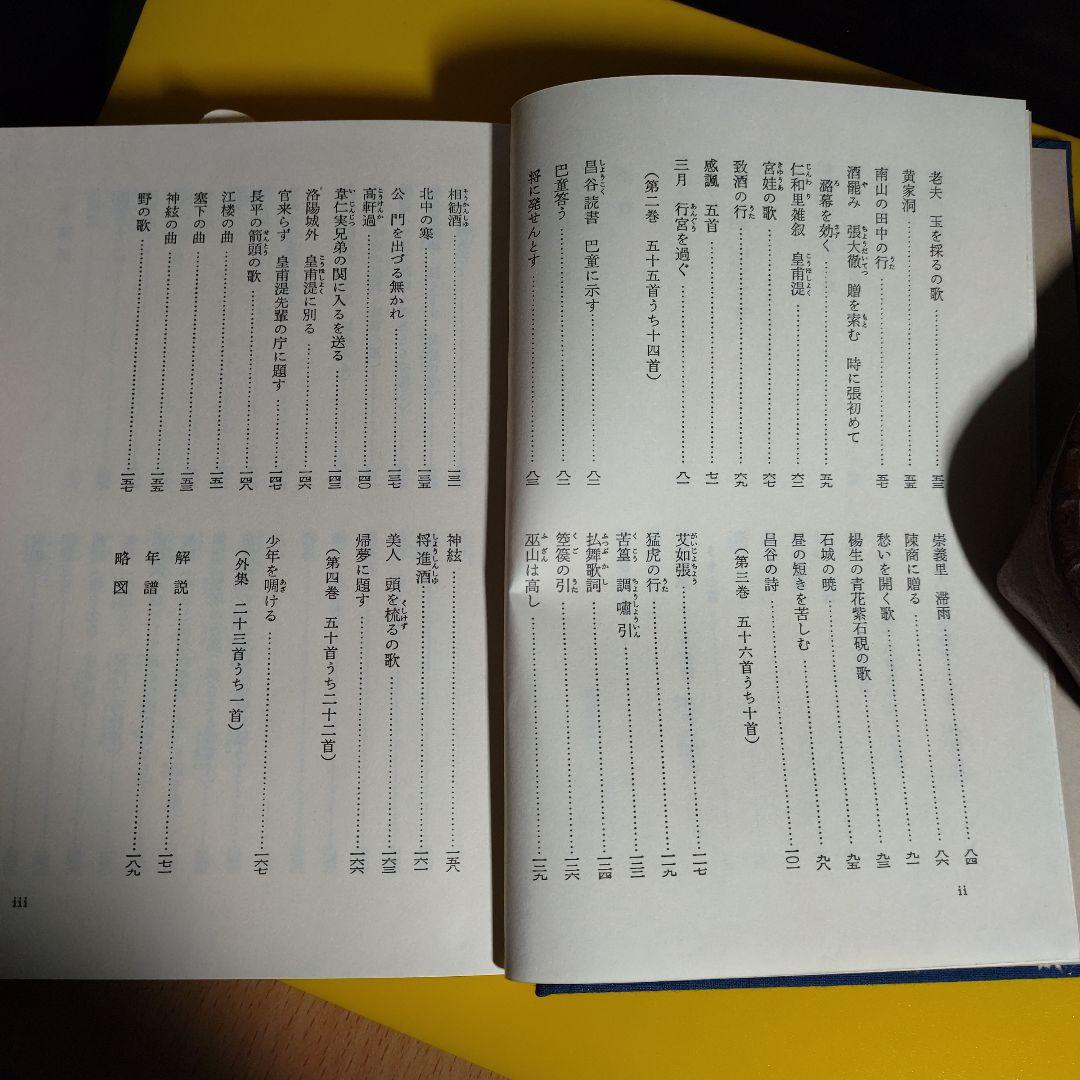 老夫 玉を採るの歌……五三
黄家洞……五五
南山の田中の行……五七
酒罷み 張大徹 贈を索む 時に張初めて
潞幕を効く……五九
仁和里雑叙 皇甫湜……六二
宮娃の歌……六七
致酒の行……六九
感諷 五首……七一
三月 行宮を過ぐ……八一
（第二巻 五十五首うち十四首）
昌谷読書 巴童に示す……八二
巴童答う……八二
将に発せんとす……八三
崇義里 滞雨……八四
陳商に贈る……八六
愁いを開く歌……九一
楊生の青花紫石硯の歌……九三
石城の暁……九五
昼の短きを苦しむ……九八
昌谷の詩……一〇一
（第三巻 五十六首うち十首）
艾如張……一一七
猛虎の行……一一九
苦篁 調嘯引……一二二
払舞歌詞……一二四
箜篌の引……一二六
巫山は高し……一二九
ii
相勧酒……一三一
北中の寒……一三五
公 門を出づる無かれ……一三七
高軒過……一四〇
韋仁実兄弟の関に入るを送る……一四三
洛陽城外 皇甫湜に別る……一四六
官来らず 皇甫湜先輩の庁に題す……一四七
長平の箭頭の歌……一四八
江楼の曲……一五一
塞下の曲……一五三
神絃の曲……一五五
野の歌……一五七
神絃……一五八
将進酒……一六一
美人 頭を梳るの歌……一六三
帰夢に題す……一六六
（第四巻 五十首うち二十二首）
少年を嘲ける……一六七
（外集 二十三首うち一首）
解説……一七一
年譜……一八九
略図
iii